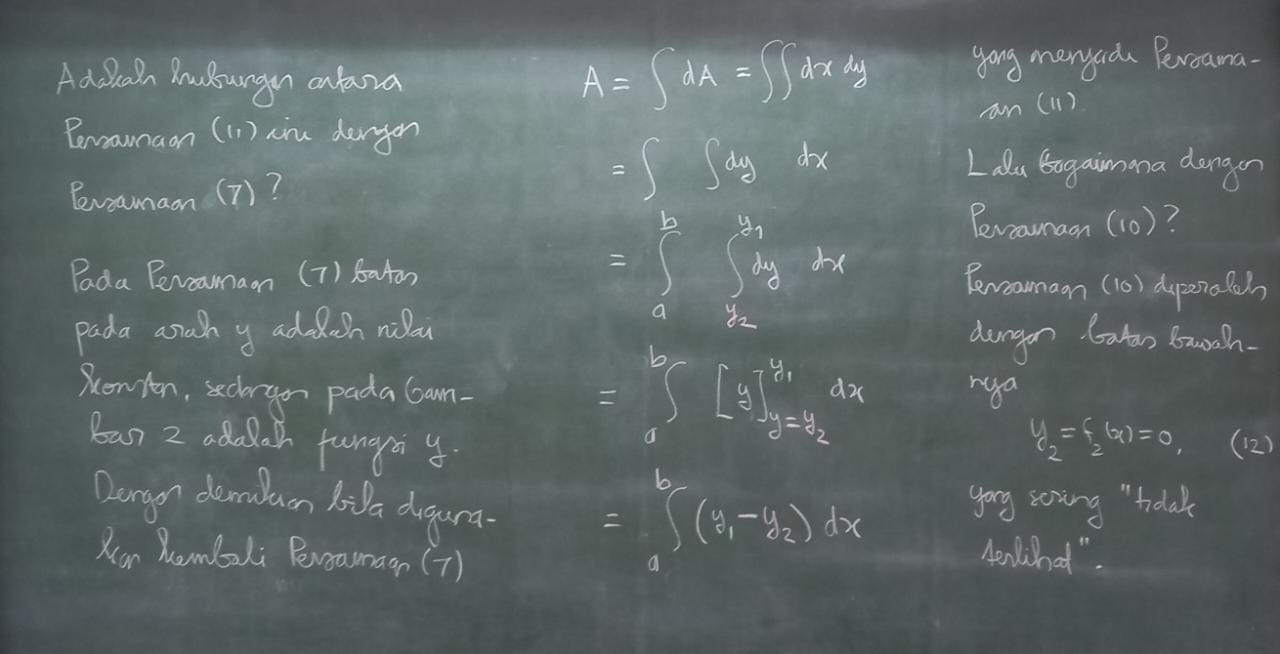 Adakah hubungan antara
Persamaan (11) ini dengan
Persamaan (7)?
Pada Persamaan (7) batas
pada arah y adalah nilai
konstan, sedangan pada Gam-
bar 2 adalah fungsi y.
Dengan demikian bila diguna-
kan kembali Persamaan (7)
A = ∫ dA = ∬ dx dy
= ∫ ∫ dy dx
= ∫_a^b ∫_{y_2}^{y_1} dy dx
= ∫_a^b [y]_{y=y_2}^{y_1} dx
= ∫_a^b (y_1 - y_2) dx
yang menjadi Persama-
an (11)
Lalu bagaimana dengan
Persamaan (10)?
Persamaan (10) diperoleh
dengan batas bawah-
nya
y_2 = f_2(x) = 0, (12)
yang sering "tidak
terlihat".